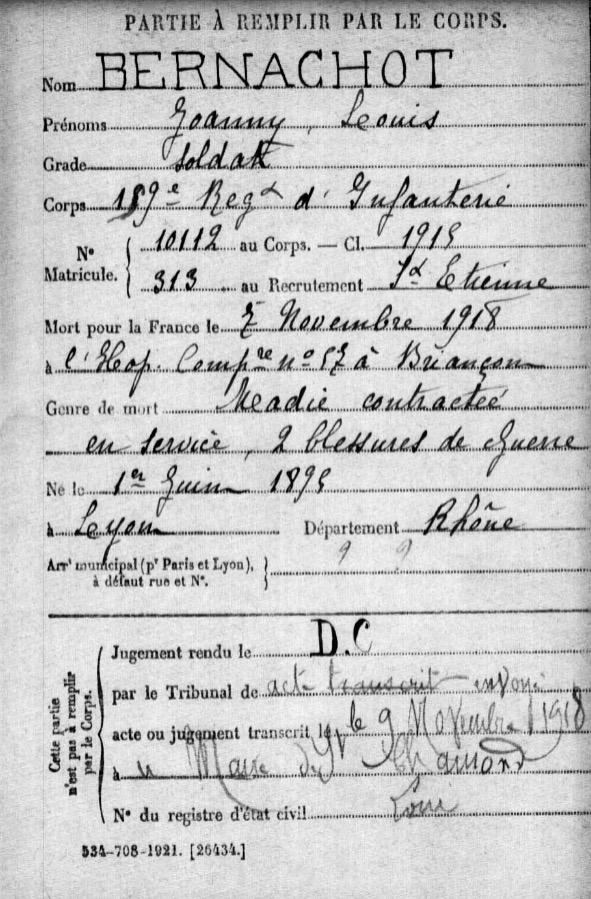 PARTIE À REMPLIR PAR LE CORPS.
Nom BERNACHOT
Prénoms Joanny, Louis
Grade Soldat
Corps 159e Regt d'Infanterie
No Matricule. 10112 au Corps. — Cl. 1915
313 au Recrutement St Etienne
Mort pour la France le 7 Novembre 1918
à l'Hop. Compre no 57 à Briançon
Genre de mort Meadie contractée
en service, 2 blessures de Guerre
Né le 1er Juin 1895
à Lyon Département Rhône
Arrt municipal (pr Paris et Lyon),
à défaut rue et No.
? ?
Cette partie
n'est pas à remplir
par le Corps.
Jugement rendu le D.C
par le Tribunal de acte transcrit envoyé
acte ou jugement transcrit le le 9 Novembre 1918
à Maire de St Chamond
No du registre d'état civil Loire
534-708-1921. [26434.]